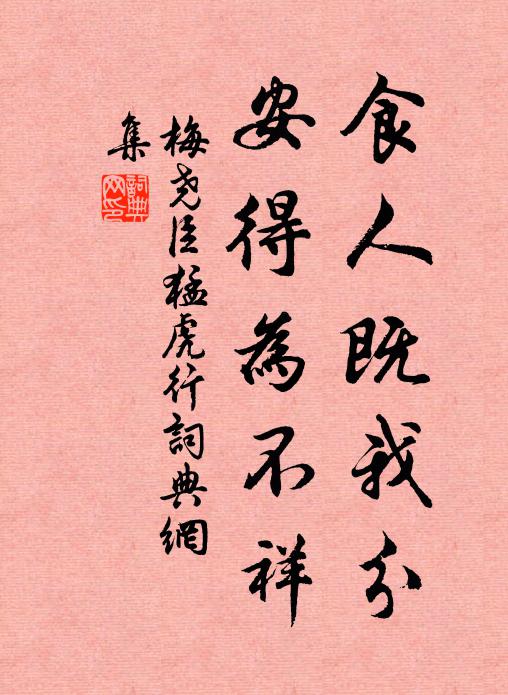 食人既我分
安得為不祥
梅尧臣猛虎行詞典網
集
詞典网印